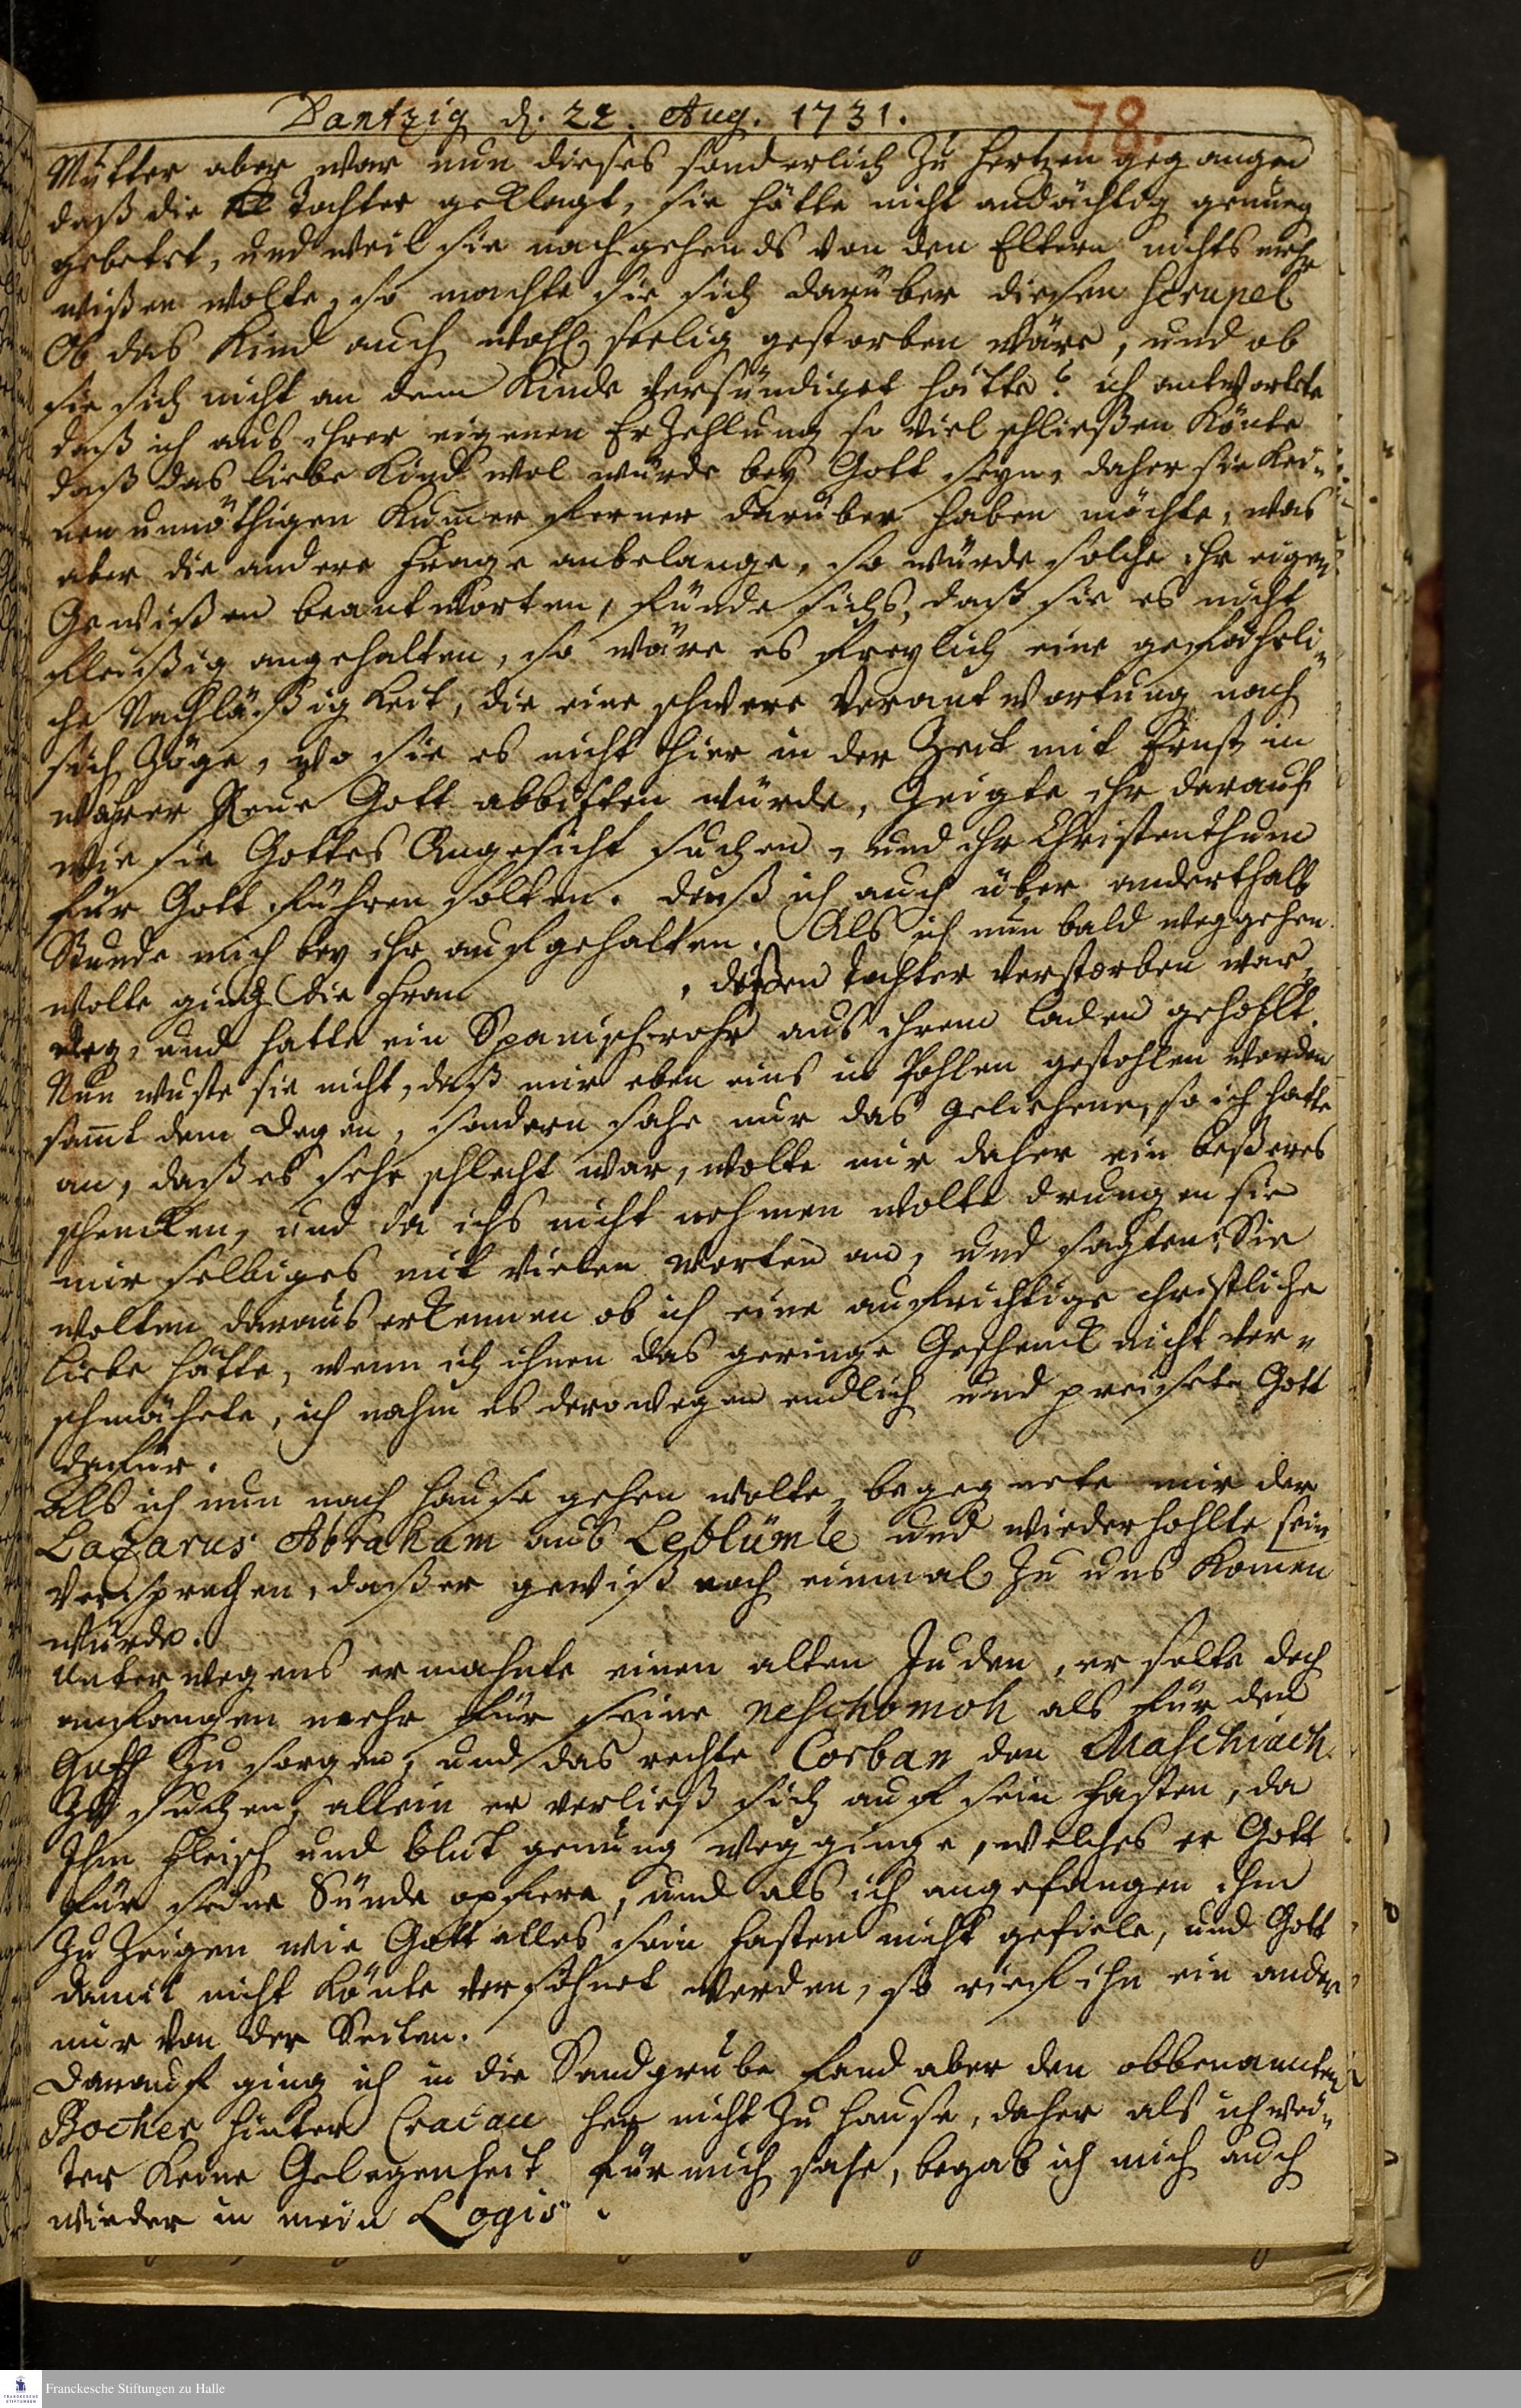 Dantzig d. 22. Aug. 1731.
78.
Mutter aber war nun dieses sonderlich zu Hertzen gegangen
daß die Tochter geklagt, sie hätte nicht andächtig genung
gebetet, und weil sie nachgehends von den Eltern nichts mehr
wißen wolte, so machte sie sich darüber diesen Scrupel
Ob das Kind auch wohl seelig gestorben wäre, und ob
sie sich nicht an dem Kinde versündiget hätte? ich antwortete
daß ich aus ihrer eigenen Erzehlung so viel schließen könte
daß das liebe Kind wol würde bey Gott seyn, daher sie kei„
nen unnöthigen Kumer ferner darüber haben möchte, was
aber die andere Frage anbelange, so würde solche ihr eigen
Gewißen beantworten, fünde sichs, daß sie es nicht
fleißig angehalten, so wäre es freylich eine gefährli„
che Nachläßigkeit, die eine schwere Verantwortung nach
sich zöge, wo sie es nicht hier in der Zeit mit Ernst in
wahrer Reue Gott abbitten würde, Zeigte ihr darauf
wie sie Gottes Angesicht suchen, und ihr Christenthum
für Gott führen solten. daß ich auch über anderthalb
Stunde mich bey ihr aufgehalten. Als ich nun bald weggehen
wolte ging die Frau , deßen Tochter verstorben war,
weg, und hatte ein Spanischrohr aus ihrem Laden gehohlt.
Nun wuste sie nicht, daß mir eben eins in Pohlen gestohlen worden
samt dem Degen, sondern sahe nur das geliehene, so ich hatte
an, daß es sehr schlecht war, wolte mir daher ein beßeres
schencken, und da ichs nicht nehmen wolte drungen sie
mir selbiges mit vielen Worten an, und sagten: Sie
wolten daraus erkennen ob ich eine aufrichtige christliche
Liebe hätte, wenn ich ihnen das geringe Geschenck nicht ver„
schmähete, ich nahm es derowegen endlich und preisete Gott
dafür.
Als ich nun nach Hause gehen wolte, begegnete mir der
Lazarus Abraham aus Leslümle und wiederhohlte sein
Versprechen, daß er gewiß noch einmal zu uns komen
würde.
Unterwegens ermahnte einen alten Juden, er solte doch
anfangen mehr für seine neschomoh als für den
Guff zu sorgen, und das rechte Corban den Maschiach
zu suchen, allein er verließ sich auf sein Fasten, da
Ihm Fleisch und Blut genung wegginge, welches er Gott
für seine Sünde opfere, und als ich angefangen ihm
zu zeigen wie Gott alles sein Fasten nicht gefiele, und Gott
damit nicht könte versöhnet werden, so rief ihn ein ander
mir von der Seiten.
Darauf ging ich in die Sandgrube fand aber den obbenannten
Bocher hinter Cracau her nicht zu Hause, daher als ich wei„
ter keine Gelegenheit für mich sahe, begab ich mich auch
wieder in mein Logis.
Franckesche Stiftungen zu Halle